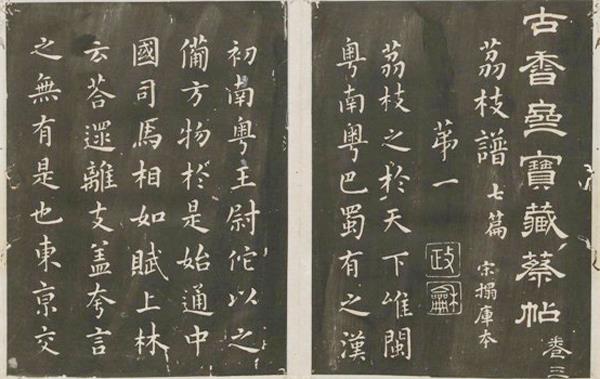 古香齋寶藏蔡帖 卷三
茘枝譜 七篇 宋搨庫本
苐一
政龢
茘枝之於天下唯閩
粤南粤巴蜀有之漢
初南粤王尉佗以之
備方物於是始通中
國司馬相如賦上林
云荅遝離支盖夸言
之無有是也東京交